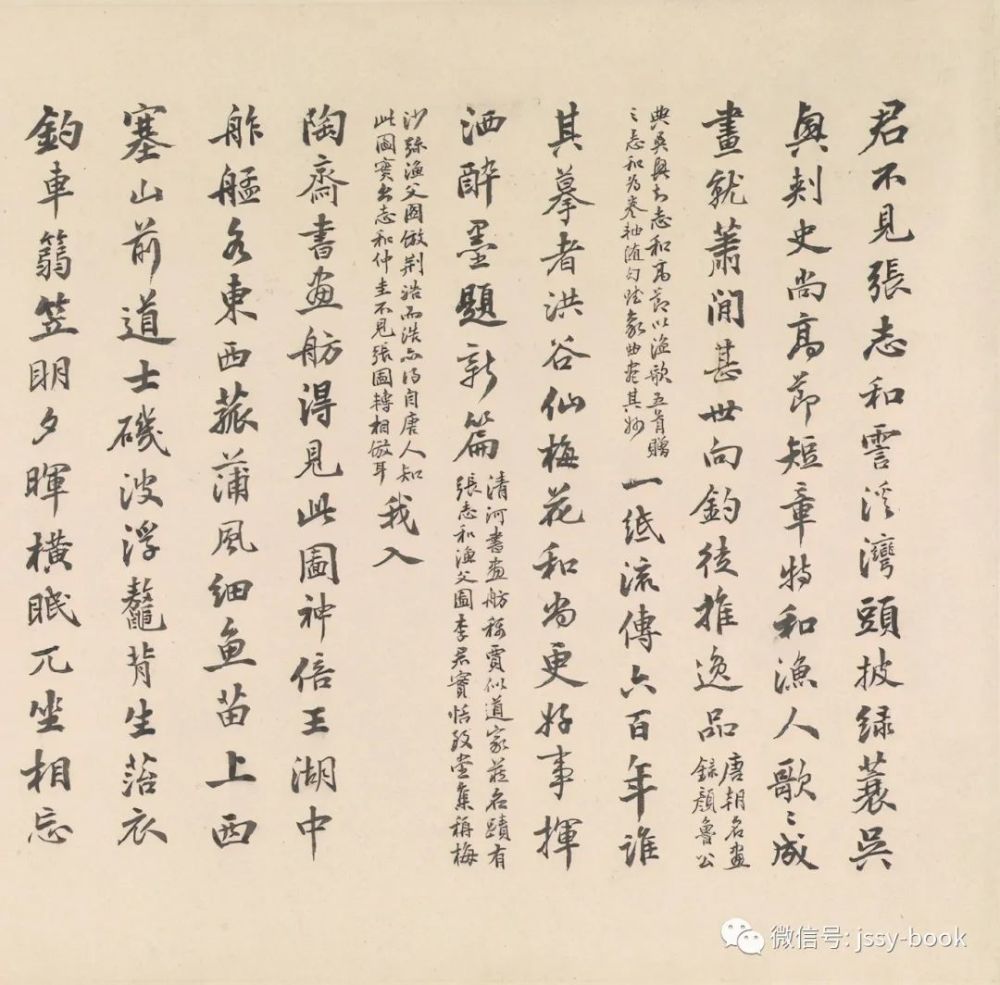 君不見張志和霅溪灣頭披緑蓑吳
興刺史尚高節短章特和漁人歌〻成
畫就蕭閒甚世向釣徒推逸品
唐朝名畫
錄顏魯公
典吳興知志和高節以漁歌五首贈
之志和為卷軸隨句賦象曲盡其妙
一紙流傳六百年誰
其摹者洪谷仙梅花和尚更好事揮
洒醉墨題新篇
清河書畫舫稱賈似道家藏名蹟有
張志和漁父圖李君實恬致堂集稱梅
沙彌漁父圖倣荆浩而浩亦得自唐人知
此圖實出志和仲圭不見張圖轉相倣耳
我入
陶齋書畫舫得見此圖神倍王湖中
舴艋各東西菰蒲風細魚苗上西
塞山前道士磯波浮鼇背生菭衣
釣車篛笠明夕暉橫眠兀坐相忘
微信号: jssy-book